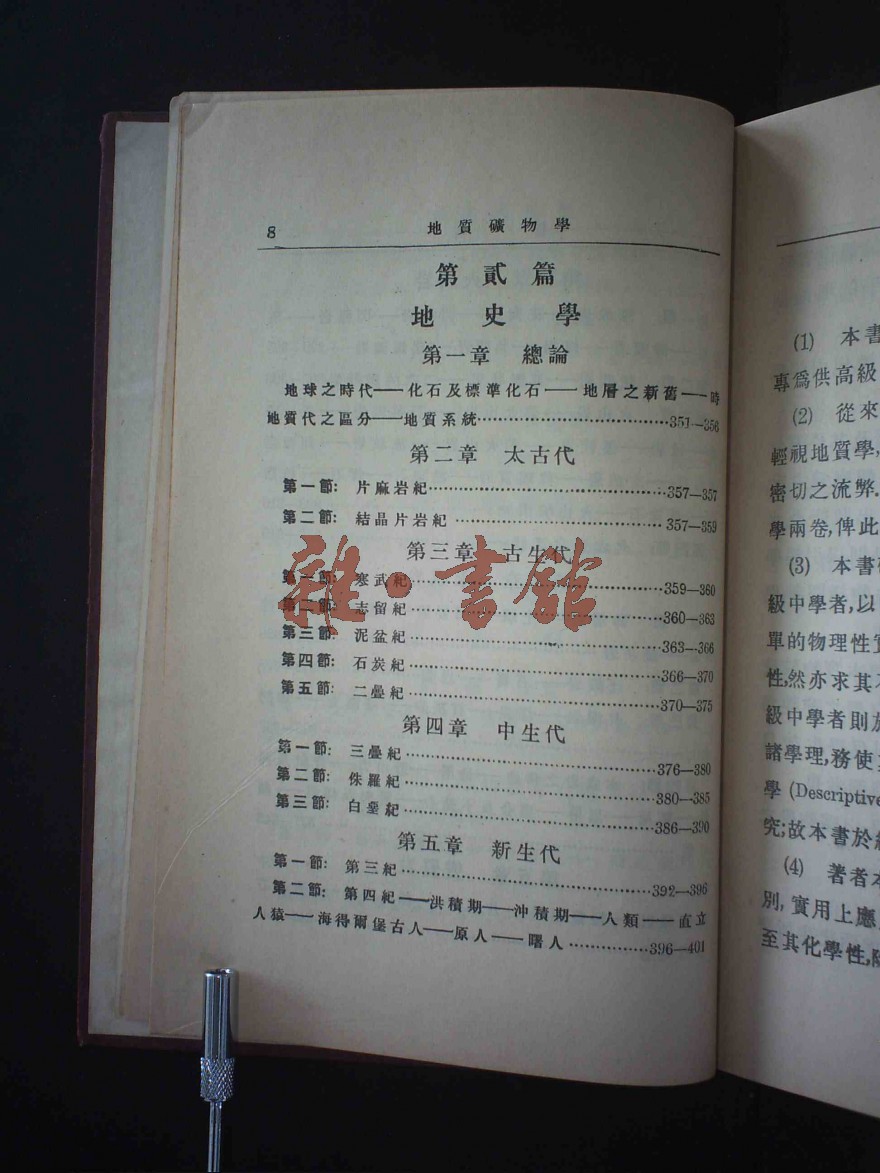 8 地質礦物學
第貳篇
地史學
第一章 總論
地球之時代——化石及標準化石——地層之新舊——時
地質代之區分——地質系統……351—356
第二章 太古代
第一節: 片麻岩紀……357—357
第二節: 結晶片岩紀……357—359
第三章 古生代
第一節: 寒武紀……359—360
第二節: 志留紀……360—363
第三節: 泥盆紀……363—366
第四節: 石炭紀……366—370
第五節: 二疊紀……370—375
第四章 中生代
第一節: 三疊紀……376—380
第二節: 侏羅紀……380—385
第三節: 白堊紀……386—390
第五章 新生代
第一節: 第三紀……392—396
第二節: 第四紀——洪積期——沖積期——人類——直立
人猿——海得爾堡古人——原人——曙人……396—401
雜·書館
(1) 本書
專爲供高級
(2) 從來
輕視地質學,
密切之流弊.
學兩卷,俾此
(3) 本書
級中學者,以
單的物理性
性,然亦求其
級中學者則
諸學理,務使
學 (Descriptive
究;故本書於
(4) 著者本
別,實用上應
至其化學性,